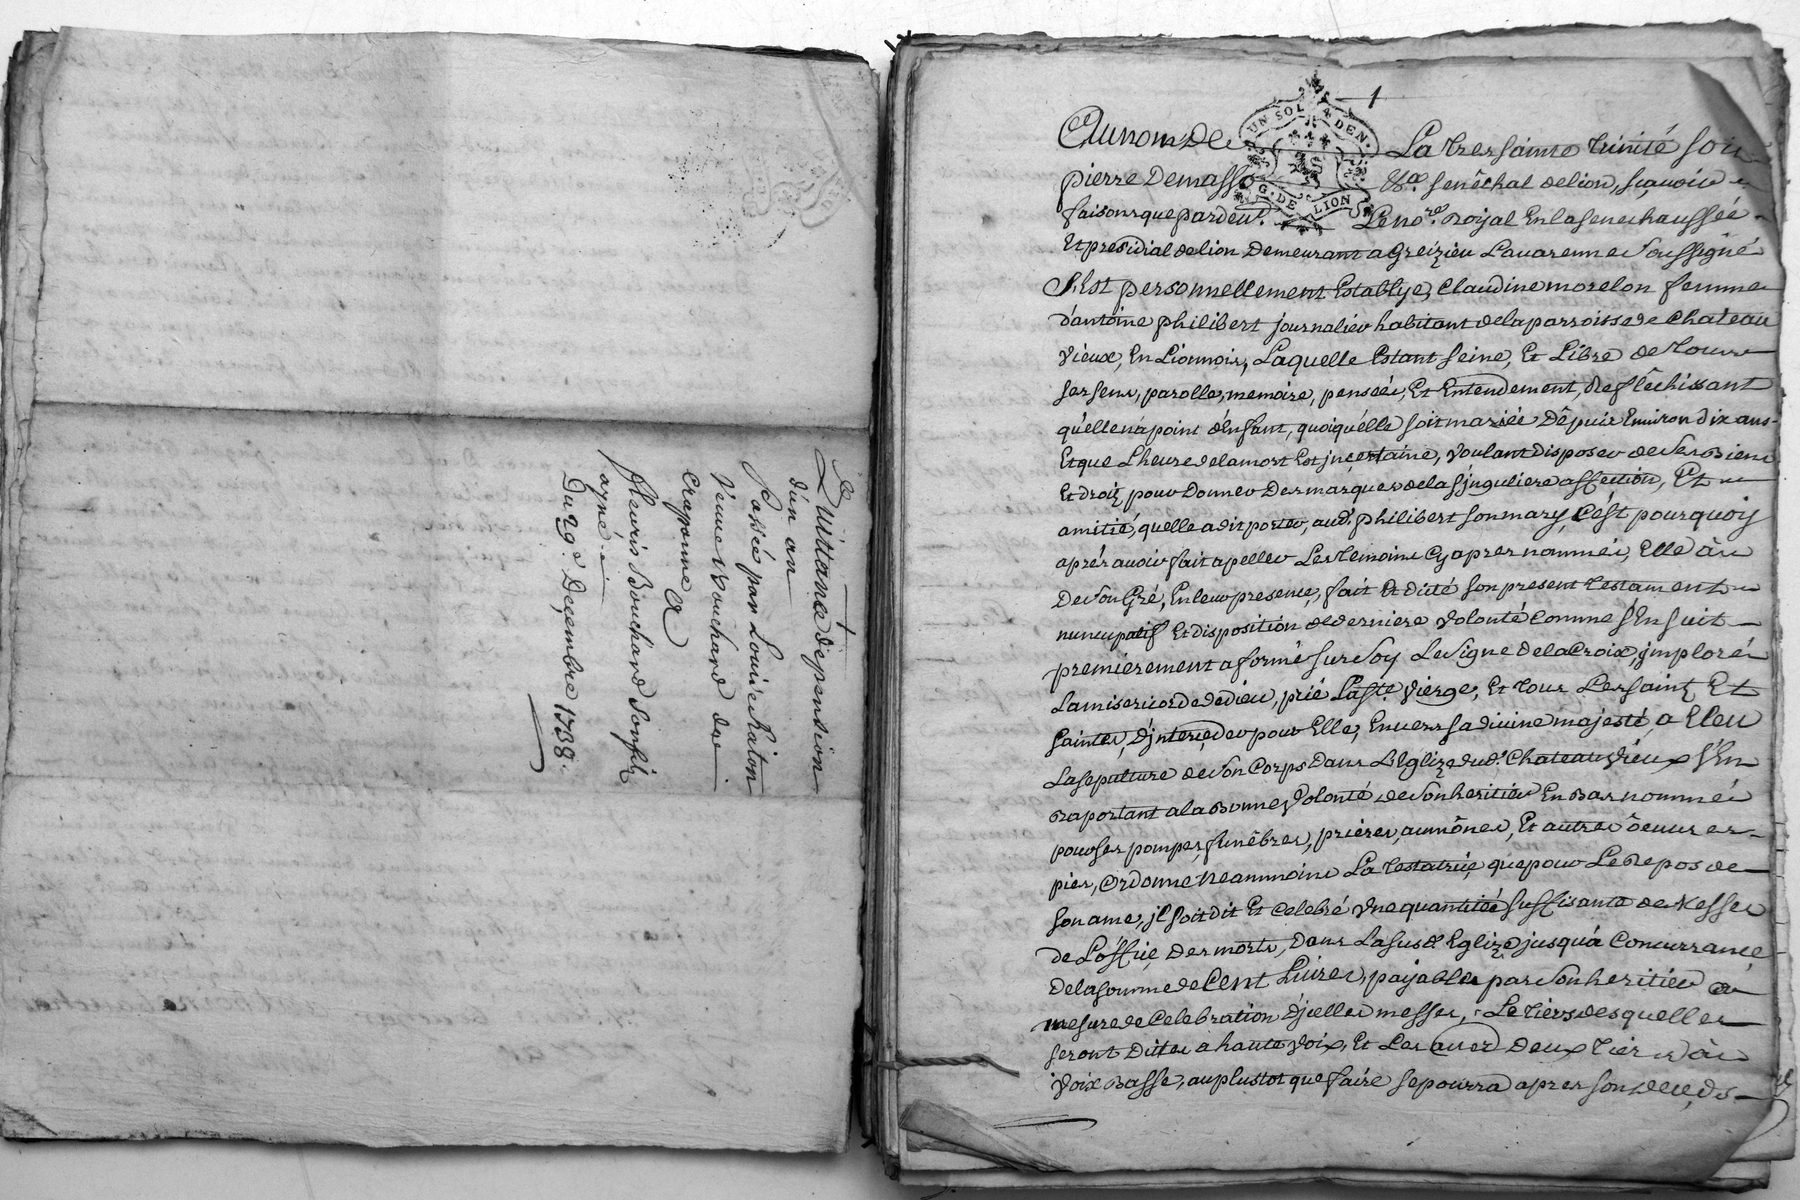 De
Quittance de pension
d'un an
Passée par Louise Raton
Veuve Bouchard de
Craponne A
fleury Bouchard son fils
ayné
Du 29e Decembre 1738.
1
UN SOL 4 DEN.
G. DE LION
Au nom de La tres sainte trinité soit
pierre Demasso sénêchal de lion, sçavoir
faisons que pardevt. Le nore. royal En la senechaussée
Et presidial de lion Demeurant a Greizieu Lavarenne soussigné
S'Est personnellement Establye, Claudine morelon femme
d'antoine philibert journalier habitant de la parroisse de Chateau
vieux, En Lionnois, Laquelle Estant seine, Et Libre de tous
ses sens, parolle, memoire, pensée, Et Entendement, Reflêchissant
qu'elle na point d'Enfant, quoiqu'elle soit mariée Dêpuis Environ dix ans
Et que L'heure de la mort Est jncertaine, voulant disposer de ses Biens
Et droitz, pour Donner Des marques de la sjnguliere affection, Et
amitié, quelle a dit porter, audt. philibert son mary, C'ést pourquoy
aprés avoir fait apeller Les temoins Cy apres nommés, Elle â
De son Gré, En leur presence, fait Et dicté son present testament
nuncupatif Et disposition de derniere volonté Comme s'Ensuit
premierement a formé sur soy Le signe de la Croix, jmploré
La misericorde de dieu, prié La ste vierge, Et tous Les saintz Et
saintes, d'jnterceder pour Elle, Envers sa divine majesté, a Eleu
La sepulture de son Corps dans L'Eglize dudt. Chateau vieux s'En
raportant a la Bonne volonté de son heritier En Bas nommé
pour ses pompes funêbres, prieres, aumônes, Et autres ôeuvres
pies, Ordonne Neanmoins La testatrice que pour Le Repos de
son ame, jl soit dit Et Celebré Une quantitéé suffisante de Messes
de L'office des morts, dans La susde Eglize jusqu'à Concurrance
de la somme de Cent Livres, payable par son heritier a
mesure de Celebration d'jcelles messes, Le tiers desquelles
seront Dittes a haute voix, Et Les autres Deux tiers â
voix Basse, au plustot que faire se pourra apres son decéds